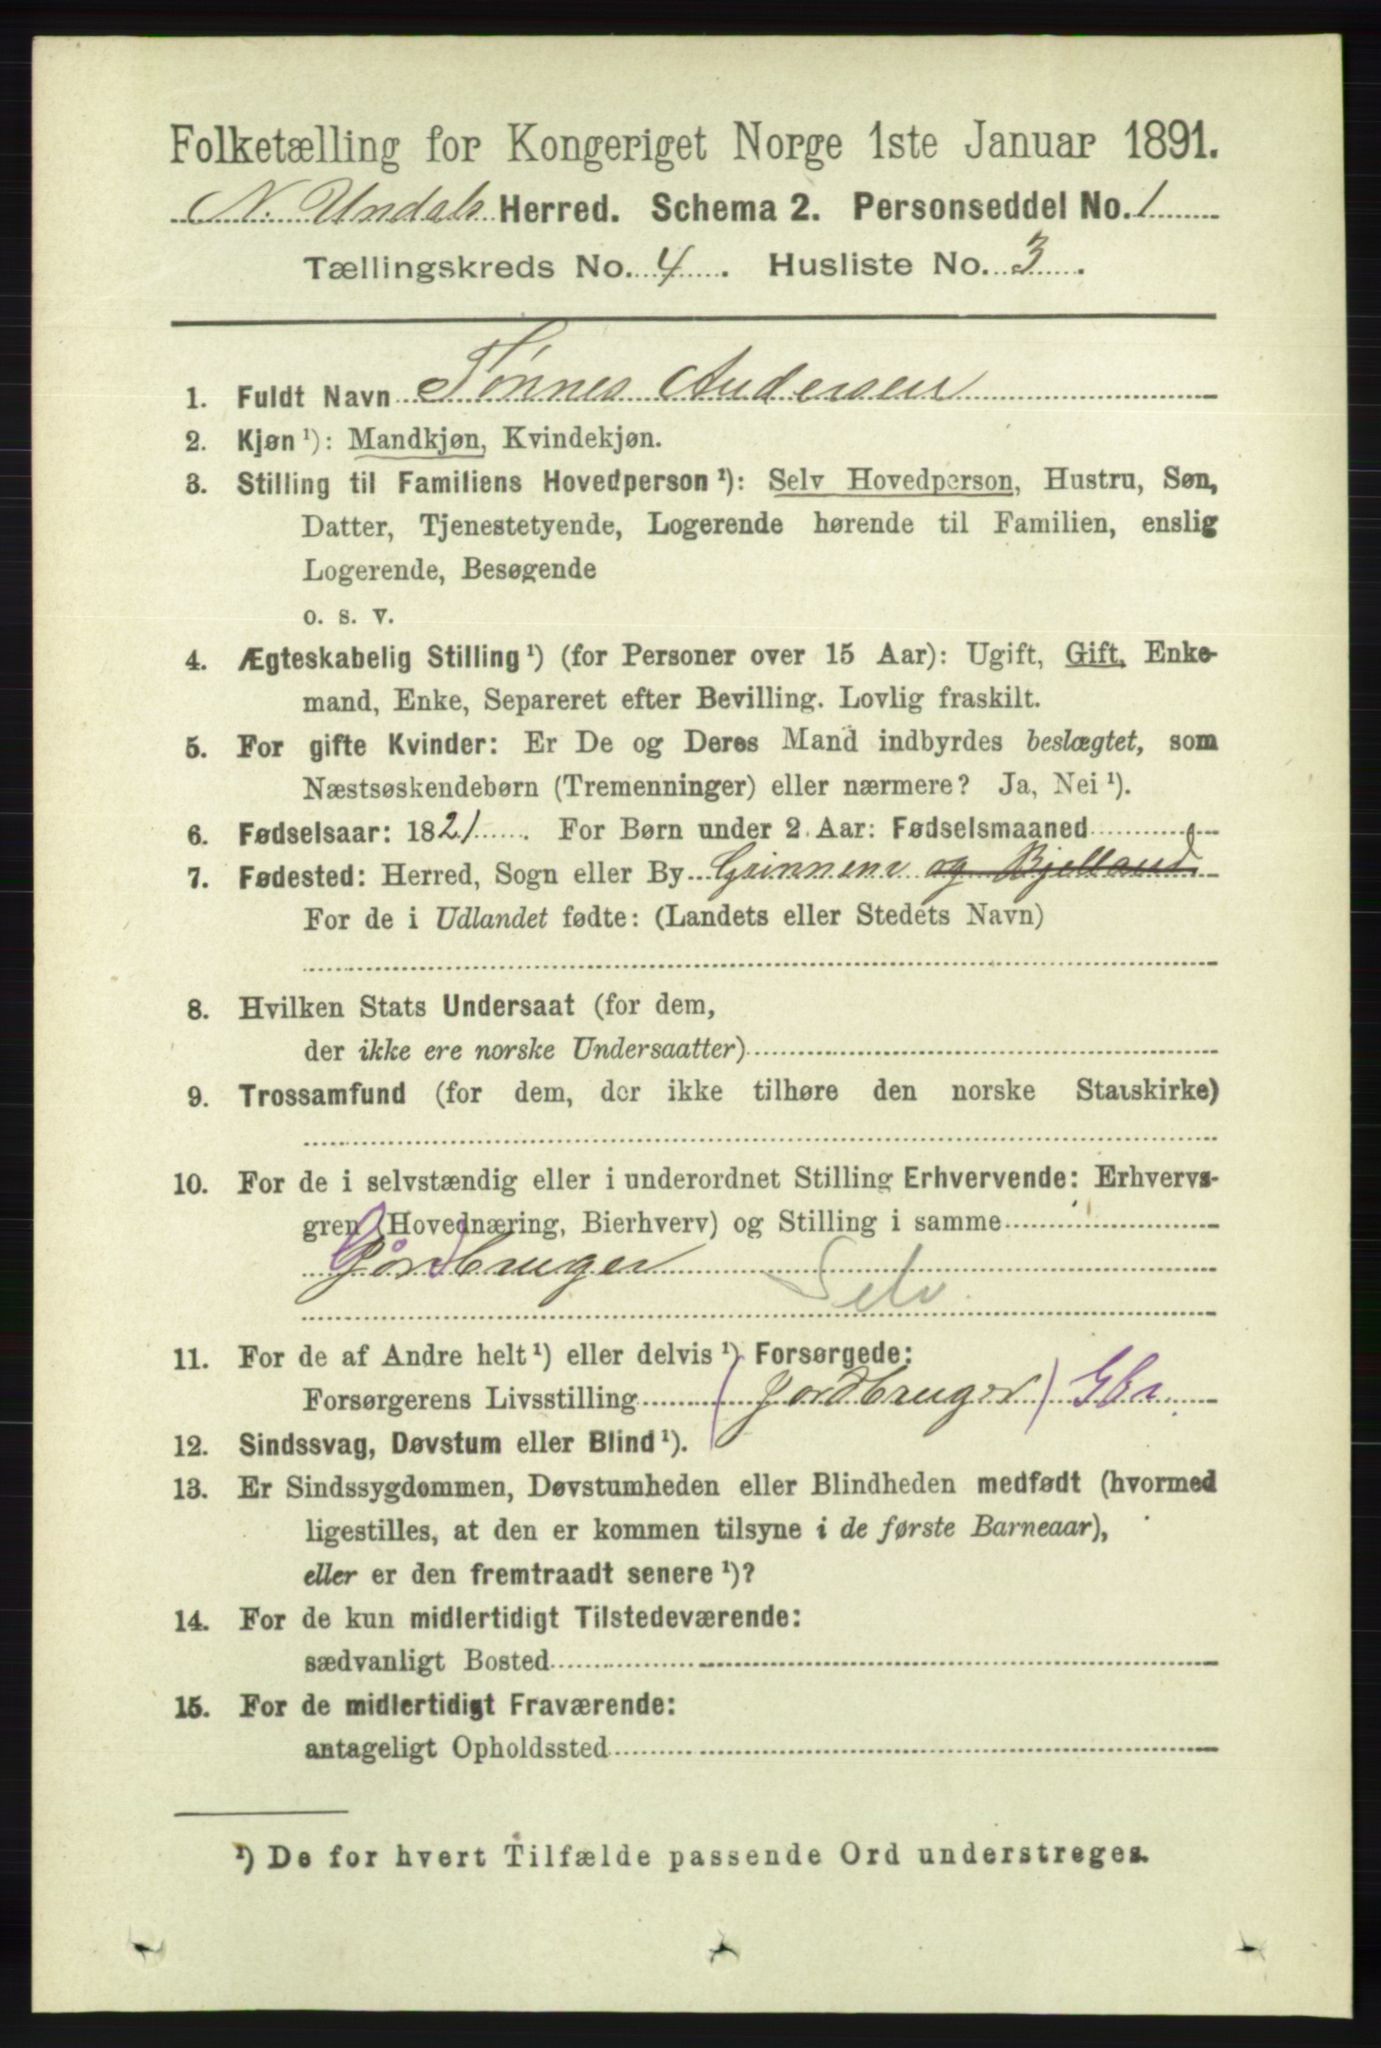 Folketælling for Kongeriget Norge 1ste Januar 1891.
N. Undals Herred. Schema 2. Personseddel No. 1
Tællingskreds No. 4. Husliste No. 3.
1. Fuldt Navn Tønnes Andersen
2. Kjøn ¹): Mandkjøn, Kvindekjøn.
3. Stilling til Familiens Hovedperson ¹): Selv Hovedperson, Hustru, Søn,
Datter, Tjenestetyende, Logerende hørende til Familien, enslig
Logerende, Besøgende
o. s. v.
4. Ægteskabelig Stilling ¹) (for Personer over 15 Aar): Ugift, Gift, Enke-
mand, Enke, Separeret efter Bevilling. Lovlig fraskilt.
5. For gifte Kvinder: Er De og Deres Mand indbyrdes beslægtet, som
Næstsøskendebørn (Tremenninger) eller nærmere? Ja, Nei ¹).
6. Fødselsaar: 1821. For Børn under 2 Aar: Fødselsmaaned
7. Fødested: Herred, Sogn eller By Grinnem og Bjelland
For de i Udlandet fødte: (Landets eller Stedets Navn)
8. Hvilken Stats Undersaat (for dem,
der ikke ere norske Undersaatter)
9. Trossamfund (for dem, der ikke tilhøre den norske Statskirke)
10. For de i selvstændig eller i underordnet Stilling Erhvervende: Erhvervs-
gren (Hovednæring, Bierhverv) og Stilling i samme
Gårdbruger Selv
11. For de af Andre helt ¹) eller delvis ¹) Forsørgede:
Forsørgerens Livsstilling (Jordbruger) Gbr
12. Sindssvag, Døvstum eller Blind ¹).
13. Er Sindssygdommen, Døvstumheden eller Blindheden medfødt (hvormed
ligestilles, at den er kommen tilsyne i de første Barneaar),
eller er den fremtraadt senere ¹)?
14. For de kun midlertidigt Tilstedeværende:
sædvanligt Bosted
15. For de midlertidigt Fraværende:
antageligt Opholdssted
¹) De for hvert Tilfælde passende Ord understreges.